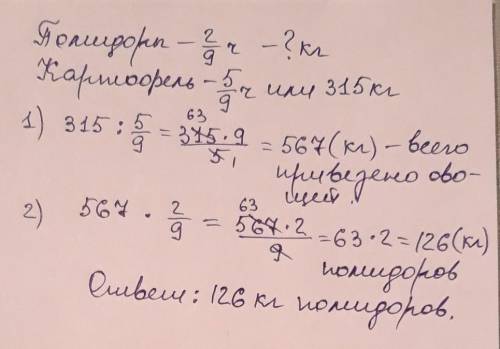 Помидоры – 2/9 ч – ? кг
Картофель – 5/9 ч или 315 кг
1) 315 : 5/9 = 315·9/5 = 567 (кг) – всего
63
1
привезено ово-
щей.
2) 567 · 2/9 = 567·2/9 = 63·2 = 126 (кг)
63
помидоров
Ответ: 126 кг помидоров.